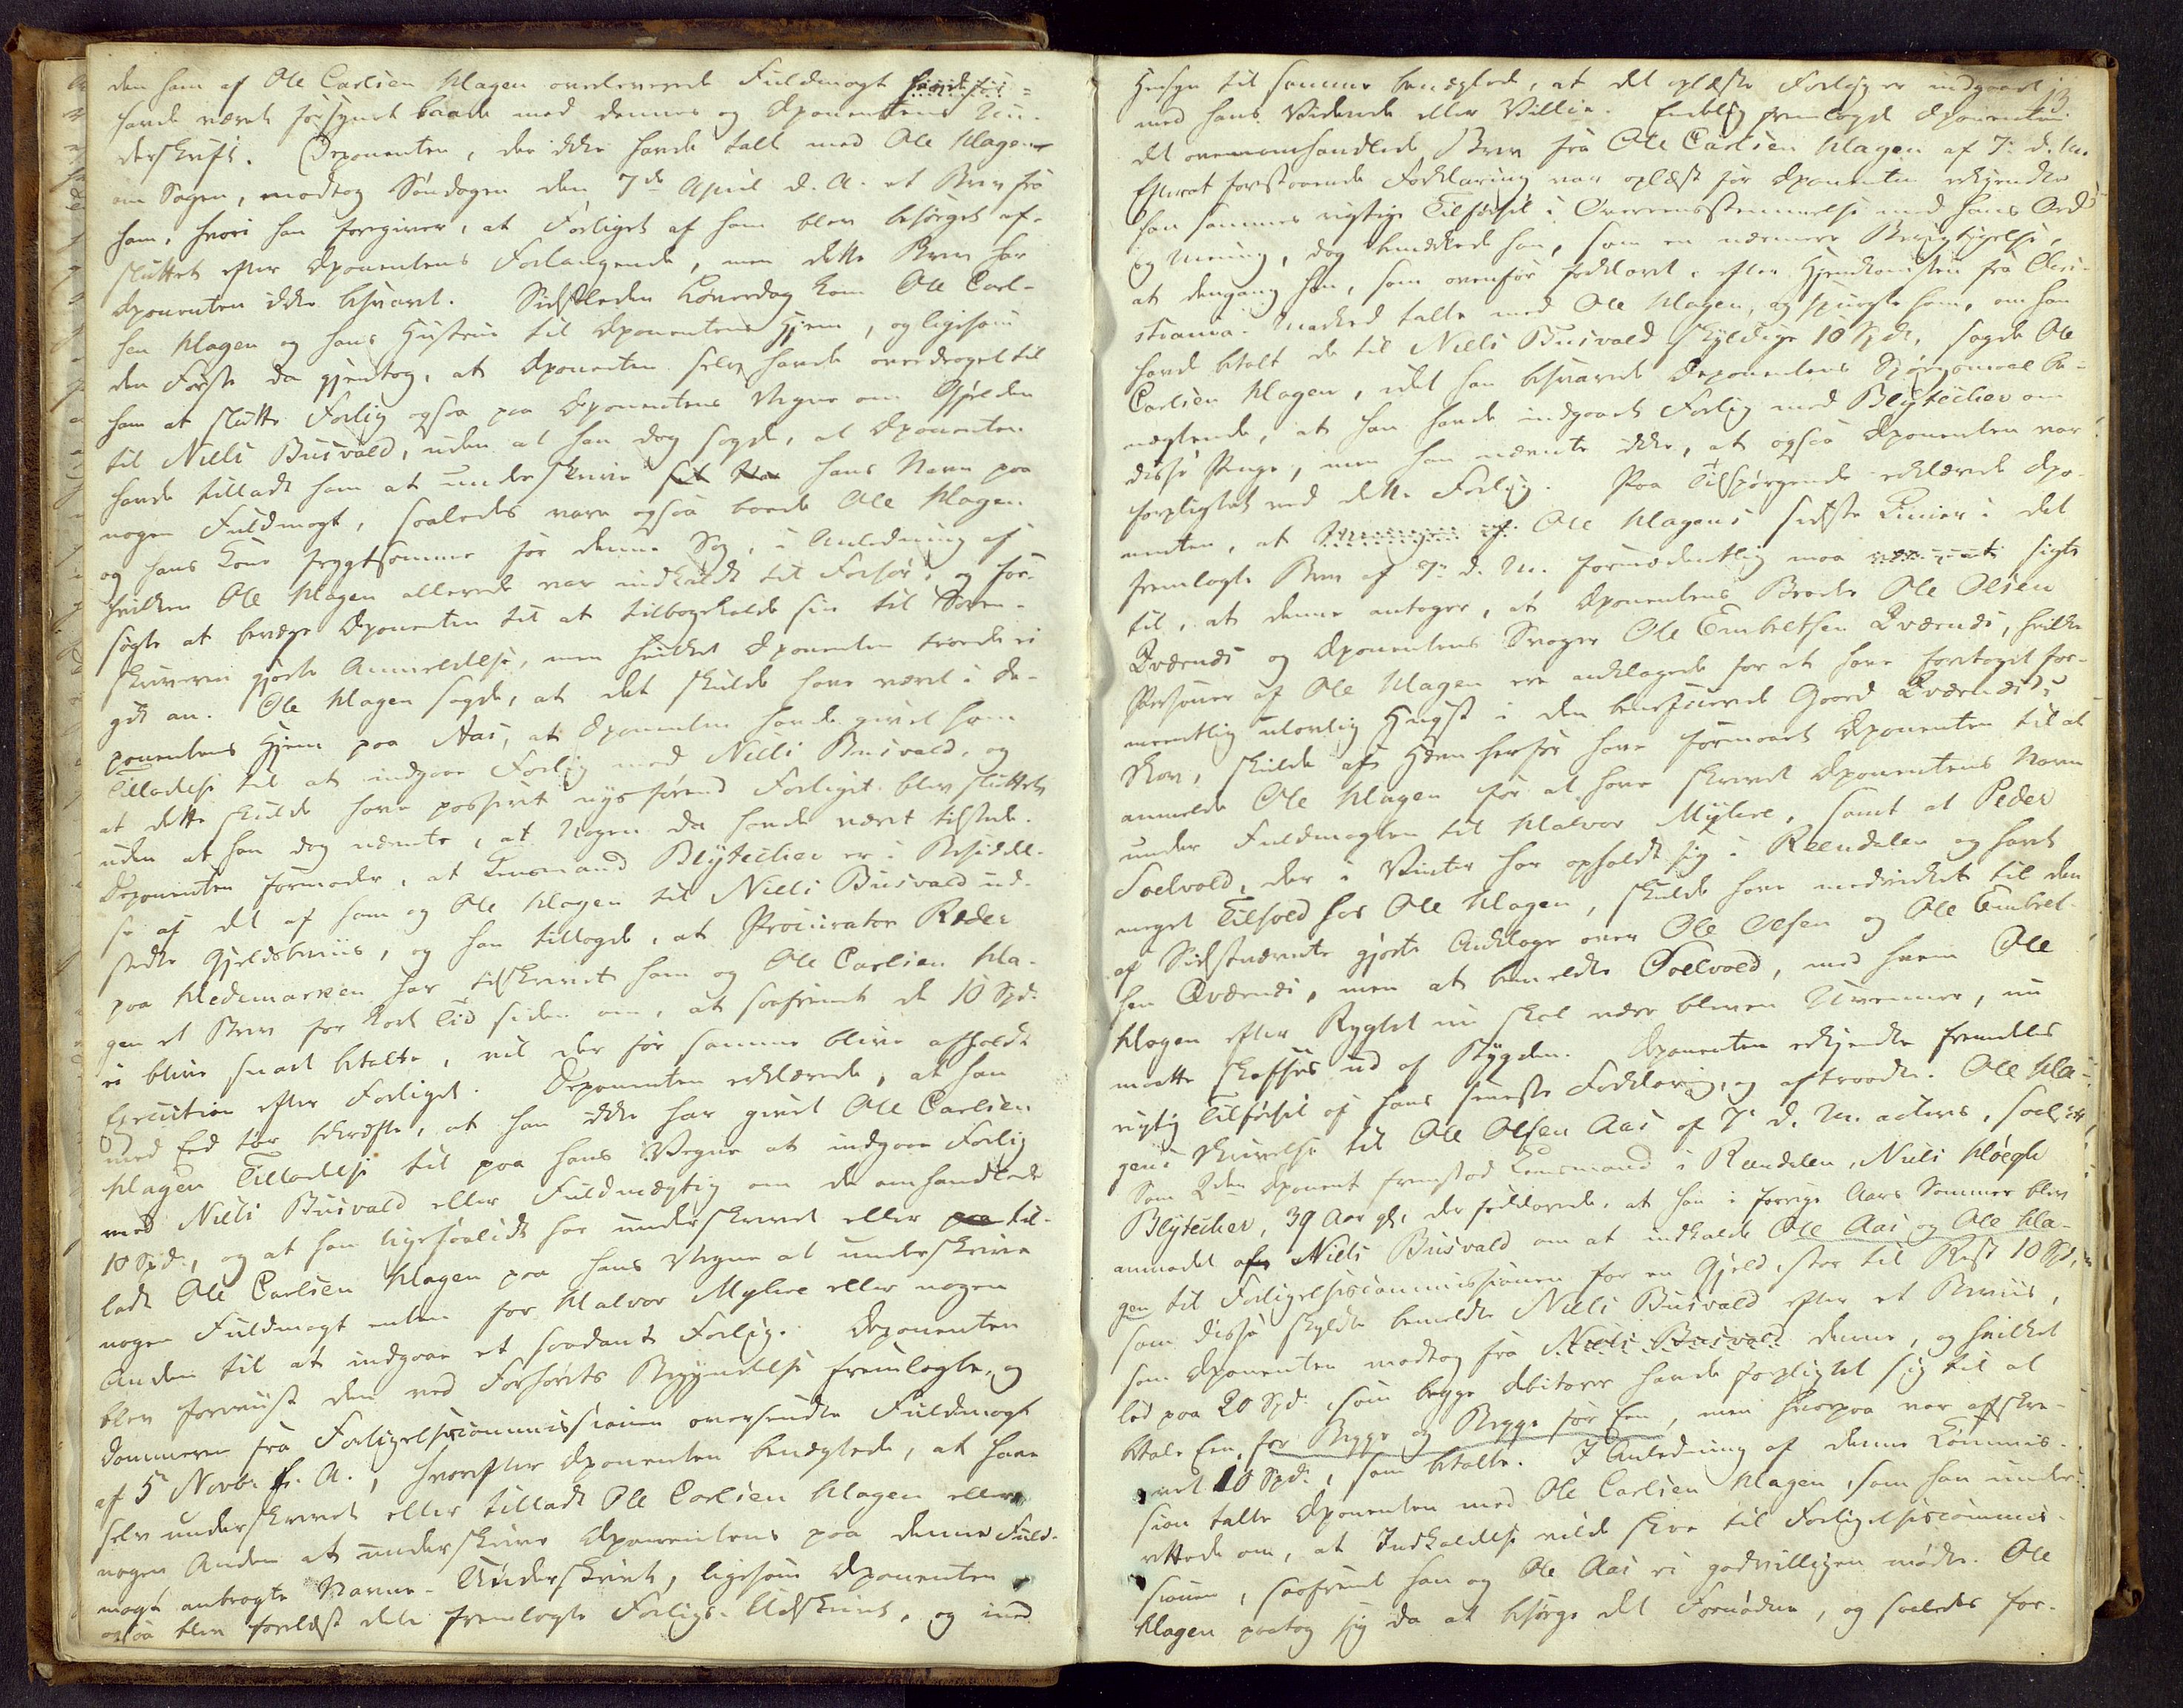 den ham af Ole Carlsen Klagen overleverede Fuldmagt
havde været forsynet baade med dennes og Deponentens Un-
derskrift. Deponenten, der ikke havde talt med Ole Klagen
om Sagen, modtog Søndagen den 7de April d. A. et Brev fra
ham, hvori han foregiver, at Forliget af ham blev besørget af-
sluttet efter Deponentens Forlangende, men dette Brev har
Deponenten ikke besvaret. Sidstleden Løverdag kom Ole Carl-
sen Klagen og hans Hustrue til Deponentens Hjem, og ligesom
den Første da gjentog, at Deponenten selv havde overdraget til
ham at slutte Forlig ogsaa paa Deponentens Vegne om Gjælden
til Niels Busvold, uden at han dog sagde, at Deponenten
havde tilladt ham at underskrive hans Navn paa
nogen Fuldmagt, saaledes vare ogsaa baade Ole Klagen
og hans Kone frygtsomme for denne Sag, i Anledning af
hvilken Ole Klagen allerede var indkaldt til Forhør, og for-
søgte at bevæge Deponenten til at tilbagekalde sin til Soren-
skriveren gjorte Anmeldelse, men hvilket Deponenten troede ei
gik an. Ole Klagen sagde, at det skulde have været i De-
ponentens Hjem paa Aas, at Deponenten havde givet ham
Tilladelse til at indgaae Forlig med Niels Busvold, og
at dette skulde have passeret nys førend Forliget blev sluttet,
uden at han dog nævnte, at Nogen da havde været tilstede.
Deponenten formoder, at Lensmand Blytecher er i Besiddel-
se af det af ham og Ole Klagen til Niels Busvold ud-
stedte Gjeldsbeviis, og han tillagde, at Procurator Reder
paa Hedemarken har tilskrevet ham og Ole Carlsen Kla-
gen et Brev for kort Tid siden om, at saafremt de 10 Spd.
ei blive snart betalte, vil der for samme blive afholdt
Execution efter Forliget. Deponenten erklærede, at han
med Eed tør bekræfte, at han ikke har givet Ole Carlsen
Klagen Tilladelse til paa hans Vegne at indgaae Forlig
med Niels Busvold eller Fuldmægtig om de omhandlede
10 Spd., og at han ligesaalidt har underskrevet eller til-
ladt Ole Carlsen Klagen paa hans Vegne at underskrive
nogen Fuldmagt enten for Halvor Myhre eller nogen
Anden til at indgaae et saadant Forlig. Deponenten
blev foreviist den ved Forhørets Begyndelse fremlagte, og
Dommeren fra Forligelsescommissionen oversendte Fuldmagt
af 5 Novbr. f. A., hvorefter Deponenten benægtede, at have
selv underskrevet eller tilladt Ole Carlsen Klagen eller
nogen Anden at underskrive Deponentens paa denne Fuld-
magt anbragte Navne-Underskrivt, ligesom Deponenten
ogsaa blev forelæst dette fremlagte Forligs-Udskrivt, og med
13
Hensyn til samme benægtede, at det oplæste Forlig er indgaaet
med hans Vidende eller Villie. Endelig fremlagde Deponenten
det ovenomhandlede Brev fra Ole Carlsen Klagen af 7. d. M.
Efterat forestaaende Forklaring var oplæst for Deponenten erkjendte
han sammes rigtige Tilførsel i Overeensstemmelse med hans Ord
og Mening, dog bemærkede han, som en nærmere Berigtigelse,
at dengang han, som ovenfor forklaret, efter Hjemkomsten fra Chri-
stiania-Marked talte med Ole Klagen, og spurgte ham, om han
havde betalt de til Niels Busvold skyldige 10 Spd., sagde Ole
Carlsen Klagen, idet han besvarede Deponentens Spørgsmaal be-
nægtende, at han havde indgaaet Forlig med Blytecher om
disse Penge, men han nævnte ikke, at ogsaa Deponenten var
forpligtet ved dette Forlig. Paa Tilspørgende erklærede Depo-
nenten, at Ole Klagens sidste Linier i det
fremlagte Brev af 7. d. M. formodentlig maa sigte
til, at denne antager, at Deponentens Broder Ole Olsen
Qværnæs og Deponentens Svoger Ole Embretsen Qværnæs, hvilke
Personer af Ole Klagen ere anklagede for at have foretaget for-
meentlig ulovlig Hugst i den beneficerede Gaard Qværnæs's
Skov, skulde af Hævn herfor have formaaet Deponenten til at
anmelde Ole Klagen for at have skrevet Deponentens Navn
under Fuldmagten til Halvor Myhre, samt at Peder
Soelvold, der i Vinter har opholdt sig i Reendalen og havt
meget Tilhold hos Ole Klagen, skulde have medvirket til den
af Sidstnævnte gjorte Anklage over Ole Olsen og Ole Embret-
sen Qværnæs, men at bemeldte Soelvold, med hvem Ole
Klagen efter Rygtet nu skal være bleven Uvenner, nu
maatte skaffes ud af Bygden. Deponenten erkjendte fremdeles
rigtig Tilførsel af hans seneste Forklaring, og aftraadte. Ole Kla-
gens Skrivelse til Ole Olsen Aas af 7. d. M. acteres, saal.
Som 2den Deponent fremstod Lensmand i Reendalen, Niels Høegh
Blytecher, 39 Aar gl., der forklarede, at han i forrige Aars Sommer blev
anmodet af Niels Busvold om at indkalde Ole Aas og Ole Kla-
gen til Forligelsescommissionen for en Gjeld, stor til Rest 10 Spd.,
som disse skyldte bemeldte Niels Busvold efter et Beviis,
som Deponenten modtog fra Niels Busvold denne, og hvilket
lød paa 20 Spd., som begge Debitorer havde forpligtet sig til at
betale Een for Begge og Begge for Een, men hvorpaa var afskre-
vet 10 Spd., som betalte. I Anledning af denne Commis-
sion talte Deponenten med Ole Carlsen Klagen, som han under-
rettede om, at Indkaldelse vilde skee til Forligelsescommis-
sionen, saafremt han og Ole Aas ei godvilligen mødte. Ole
Klagen paatog sig da at besørge det Fornødne, og saaledes for-